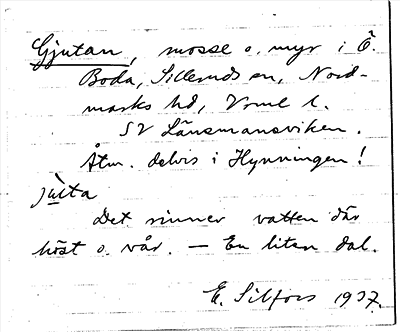 Gjutan, mosse o. myr i Ö.
Boda, Silleruds sn, Nord-
marks hd, Vrml l.
SV Länsmansviken.
Åtm. delvis i Hynningen!
jùta
Det rinner vatten där
höst o. vår. – En liten dal.
E. Silfors 1937.